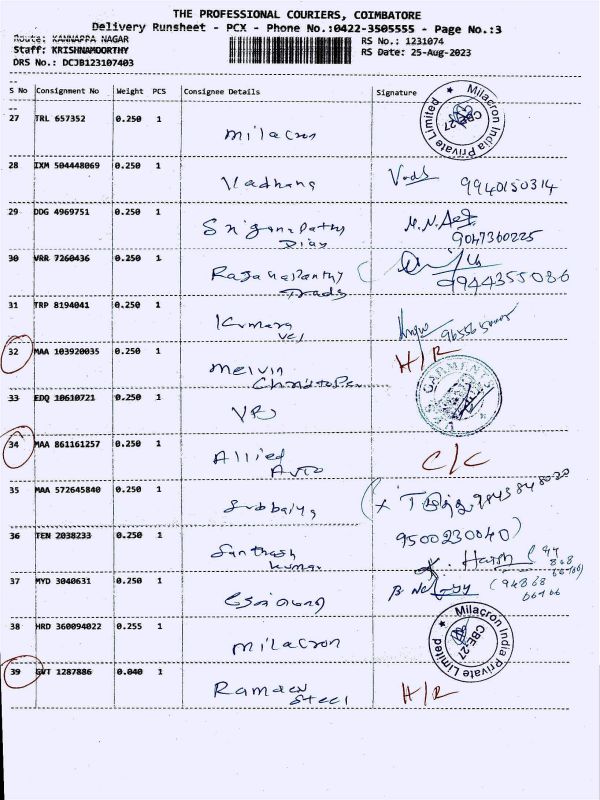 THE PROFESSIONAL COURIERS, COIMBATORE
Delivery Runsheet - PCX - Phone No.:0422-3505555 - Page No.:3
Route: KANNAPPA NAGAR
RS No.: 1231074
Staff: KRISHNAMOORTHY
RS Date: 25-Aug-2023
DRS No.: DCJB123107403
S No Consignment No Weight PCS Consignee Details Signature
27 TRL 657352 0.250 1 Milacron
Milacron India Private Limited CBE-27
28 IXM 504448069 0.250 1 Vadhana 9940150314
29 DDG 4969751 0.250 1 Sri ganapathy 9047360225
30 VRR 7260436 0.250 1 9944355086
31 TRP 8194041 0.250 1
32 MAA 103920035 0.250 1 Melvin H/R
33 EDQ 10610721 0.250 1 VR
GARMENTS
34 MAA 861161257 0.250 1 Allied Auto C/C
35 MAA 572645840 0.250 1 Subbaiya
36 TEN 2038233 0.250 1 Santhosh Kumar 9500230040)
Harsh
37 MYD 3040631 0.250 1
38 HRD 360094022 0.255 1 Milacron
Milacron India Private Limited CBE-27
39 GVT 1287886 0.040 1 Ramdev Steel H/R